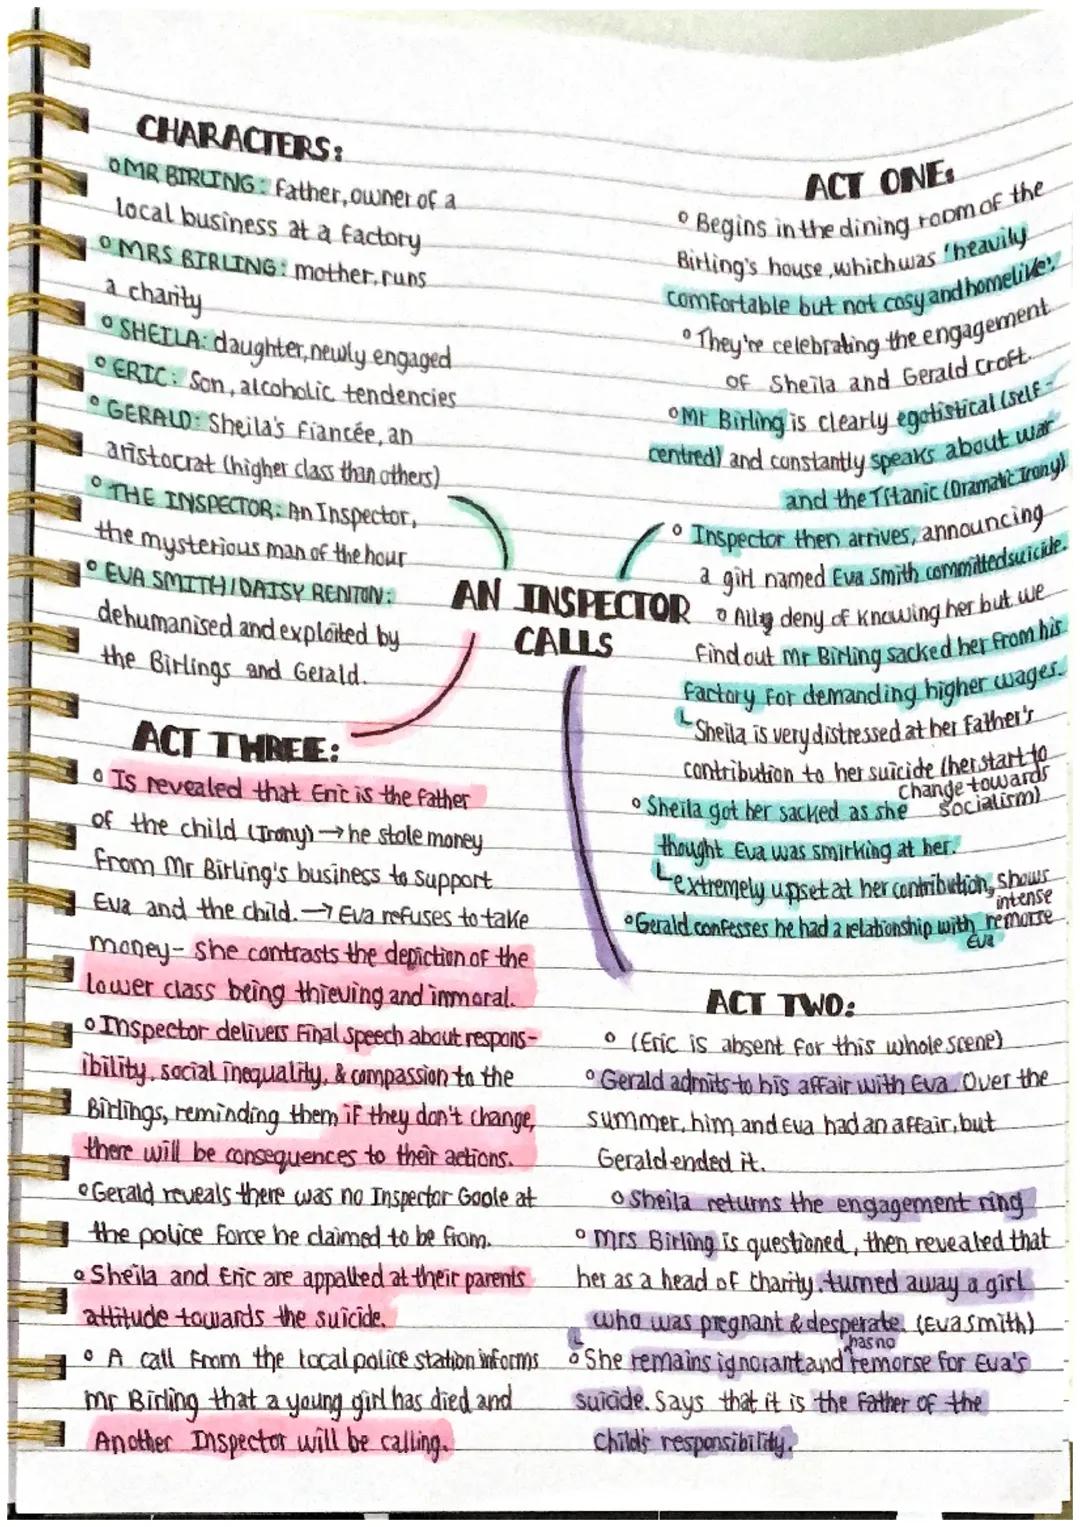 CHARACTERS:
○ MR BIRLING: Father, owner of a
local business at a factory
○ MRS BIRLING: mother, runs
a charity
○ SHEILA: daughter, newly engaged
○ ERIC: Son, alcoholic tendencies
○ GERALD: Sheila's fiancée, an
aristocrat (higher class than others)
○ THE INSPECTOR: An Inspector,
the mysterious man of the hour
○ EVA SMITH/DAISY RENTON:
dehumanised and exploited by
the Birlings and Gerald.
AN INSPECTOR
CALLS
ACT ONE:
○ Begins in the dining room of the
Birling's house, which was 'heavily
comfortable but not cosy and homelike'.
○ They're celebrating the engagement
of Sheila and Gerald Croft.
○ Mr Birling is clearly egotistical (self-
centred) and constantly speaks about war
and the Titanic (Dramatic Irony)
○ Inspector then arrives, announcing
a girl named Eva Smith committed suicide.
○ All deny of knowing her but we
find out Mr Birling sacked her from his
factory for demanding higher wages.
Sheila is very distressed at her father's
contribution to her suicide (her start to
change towards
socialism)
○ Sheila got her sacked as she
thought Eva was smirking at her.
extremely upset at her contribution, shows
intense
remorse
○ Gerald confesses he had a relationship with
Eva
ACT TWO:
○ (Eric is absent for this whole scene)
○ Gerald admits to his affair with Eva. Over the
summer, him and Eva had an affair, but
Gerald ended it.
○ Sheila returns the engagement ring
○ Mrs Birling is questioned, then revealed that
her as a head of charity, turned away a girl
who was pregnant & desperate. (Eva Smith)
has no
○ She remains ignorant and remorse for Eva's
suicide. Says that it is the father of the
child's responsibility.
ACT THREE:
○ Is revealed that Eric is the father
of the child (Irony) → he stole money
from Mr Birling's business to support
Eva and the child. → Eva refuses to take
money- she contrasts the depiction of the
lower class being thieving and immoral.
○ Inspector delivers final speech about respons-
ibility, social inequality, & compassion to the
Birlings, reminding them if they don't change,
there will be consequences to their actions.
○ Gerald reveals there was no Inspector Goole at
the police force he claimed to be from.
○ Sheila and Eric are appalled at their parents
attitude towards the suicide.
○ A call from the local police station informs
Mr Birling that a young girl has died and
Another Inspector will be calling.